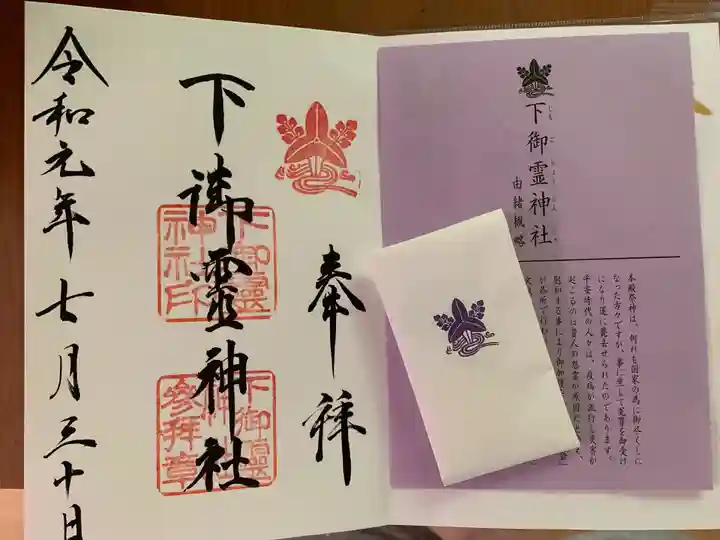 奉拝
下御霊神社
下御靈
神社印
下御靈
神社
参拜章
令和元年七月三十日
下御霊神社
しもごりょうじんじゃ
由緒概略
本殿祭神は、何れも国家の為に御尽くしに
なった方々ですが、事に坐して冤罪を御受け
になり遂に薨去せられたのであります。
平安時代の人々は、疫病が流行し災害が
起こるのは昔人の怨霊が原因だ
慰和する事により御加護
が各所で行わ